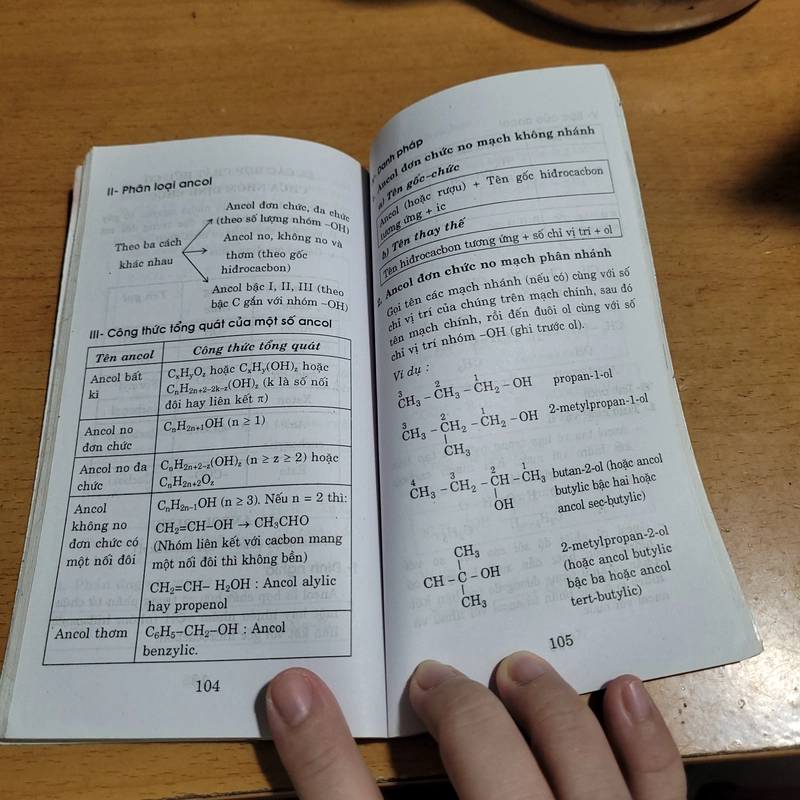 II- Phân loại ancol
Theo ba cách
khác nhau
Ancol đơn chức, đa chức
(theo số lượng nhóm –OH)
Ancol no, không no và
thơm (theo gốc
hiđrocacbon)
Ancol bậc I, II, III (theo
bậc C gắn với nhóm –OH)
III- Công thức tổng quát của một số ancol
Tên ancol Công thức tổng quát
Ancol bất
kì
CxHyOz hoặc CxHy(OH)z hoặc
CnH2n+2–2k–z(OH)z (k là số nối
đôi hay liên kết π)
Ancol no
đơn chức
CnH2n+1OH (n ≥ 1)
Ancol no đa
chức
CnH2n+2–z(OH)z (n ≥ z ≥ 2) hoặc
CnH2n+2Oz
Ancol
không no
đơn chức có
một nối đôi
CnH2n–1OH (n ≥ 3). Nếu n = 2 thì:
CH2=CH–OH → CH3CHO
(Nhóm liên kết với cacbon mang
một nối đôi thì không bền)
CH2=CH– H2OH : Ancol alylic
hay propenol
Ancol thơm
C6H5–CH2–OH : Ancol
benzylic.
104
Danh pháp
Ancol đơn chức no mạch không nhánh
a) Tên gốc-chức
Ancol (hoặc rượu) + Tên gốc hiđrocacbon
tương ứng + ic
b) Tên thay thế
Tên hiđrocacbon tương ứng + số chỉ vị trí + ol
2. Ancol đơn chức no mạch phân nhánh
Gọi tên các mạch nhánh (nếu có) cùng với số
chỉ vị trí của chúng trên mạch chính, sau đó
tên mạch chính, rồi đến đuôi ol cùng với số
chỉ vị trí nhóm –OH (ghi trước ol).
Ví dụ :
3 2 1
CH3 – CH3 – CH2 – OH propan-1-ol
3 2 1
CH3 – CH2 – CH2 – OH 2-metylpropan-1-ol
CH3
4 3 2 1
CH3 – CH2 – CH – CH3 butan-2-ol (hoặc ancol
OH butylic bậc hai hoặc
ancol sec-butylic)
CH3
CH – C – OH
CH3
2-metylpropan-2-ol
(hoặc ancol butylic
bậc ba hoặc ancol
tert-butylic)
105